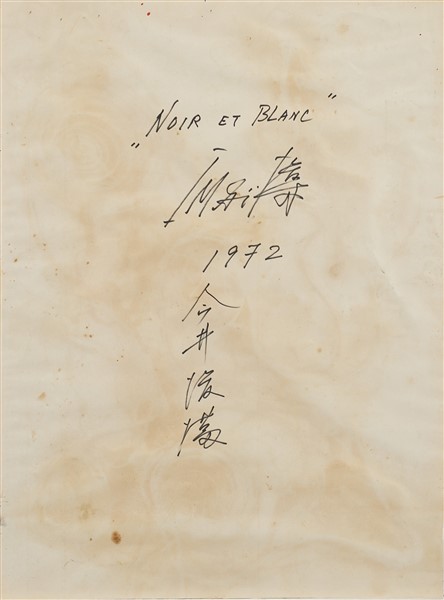 "NOIR ET BLANC"
IMAI
1972
今井俊満